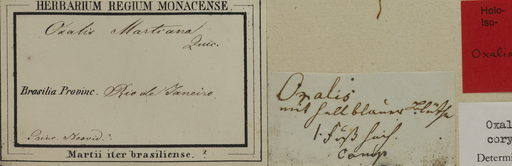 HERBARIUM REGIUM MONACENSE
Oxalis Martiana
Zuic.
Brasilia Provinc. Rio de Janeiro
Princ. Neovid.
Martii iter brasiliense.
Oxalis
mit hellblauer Blüthe
1 Fuß hoch.
Camp
Holo-
Iso-
Oxalis
Oxal
cory
Determ